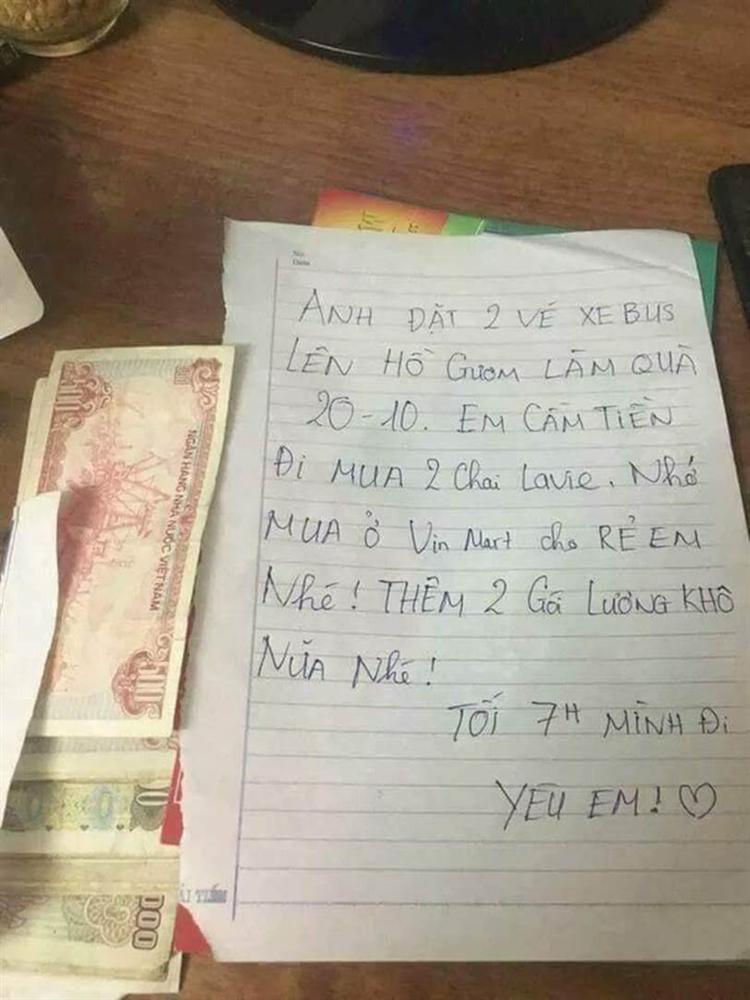 No:
Date:
ANH ĐẶT 2 VÉ XE BUS
LÊN HỒ GƯƠM LÀM QUÀ
20-10. EM CẦM TIỀN
ĐI MUA 2 Chai Lavie. Nhớ
MUA Ở Vin Mart cho RẺ EM
Nhé! THÊM 2 Gói LƯƠNG KHÔ
NỮA Nhé!
TỐI 7H MÌNH ĐI
YÊU EM! ♡
NGÂN HÀNG NHÀ NƯỚC VIỆT NAM
500
500
000
HẢI TIẾN